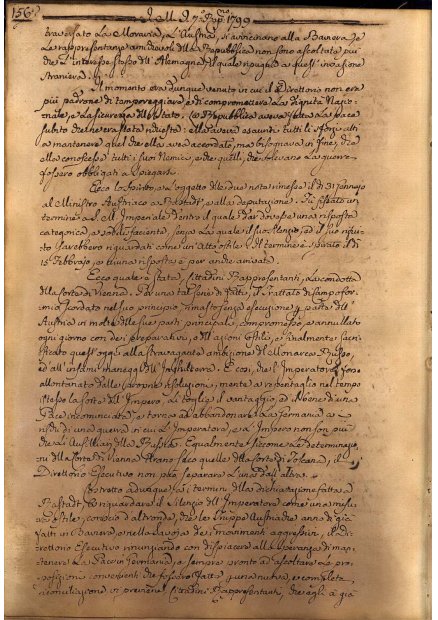 156.
traversato la Moravia, e l'Austria, si avvicinano alla Baviera. Se
le rappresentanze amichevoli della Repubblica non sono ascoltate più
che l'interesse stesso dell'Alemagna, il quale ripugna a quest'invasione
straniera.
Il momento era dunque venuto in cui il Direttorio non era
più padrone di temporeggiare, e di compromettere la dignità Nazio-
nale, e la sicurezza dello Stato. La Repubblica aveva data la pace
subito che ne era stata richiesta: ella aveva esauriti tutti li sforzi atti
a mantenere quel che ella avea accordato, ma bisognava in fine, che
ella conoscesse tutti i suoi Nemici, e che quelli, che volevano la guerra
fossero obbligati a spiegarsi.
Ecco lo spirito, e l'oggetto delle due note rimesse il dì 31 Gennajo
al Ministro Austriaco a Rastadt, e alla deputazione. Fu fissato un
termine a S. M. Imperiale dentro il quale dar dovesse una risposta
categorica, e sodisfaciente, senza la quale il suo silenzio, ed il suo rifiu-
to sarebbero riguardati come un'atto ostile. Il termine è spirato il dì
15 Febbrajo, e niuna risposta è per anche arrivata.
Ecco quale è stata, Cittadini Rappresentanti, la condotta
della Corte di Vienna. Per una tal serie di fatti, il Trattato di Campofor-
mio scordato nel suo principio, rimasto senza esecuzione per parte dell'
Austria in molte delle sue parti principali, compromesso, e annullato
ogni giorno con dei preparativi, o dell'azioni ostili, è finalmente sacri-
ficato quest'oggi alla stravagante ambizione del Monarca Russo,
ed all'infami maneggi dell'Inghilterra. E così, che l'Imperatore, forse
allontanato dalle proprie risoluzioni, mette a repentaglio nel tempo
istesso la sorte dell'Impero, li toglie il vantaggio, ed il bene di una
Pace incominciata, e torna ad abbandonare la Germania a
tutti di una guerra in cui l'Imperatore, e l'Impero non son più
che li Ausiliari della Russia. Equalmente siccome le determinazio-
ni della Corte di Vienna tirano seco quelle della Corte di Toscana, il
Direttorio Esecutivo non può separare l'una dall'altra.
Costretto adunque fra i termini della dichiarazione fatta a
Rastadt, a riguardare il silenzio dell'Imperatore come una misu-
ra ostile, conscio d'altronde, che le Truppe Austriache anno di già
fatti in Baviera, e nella Svevia dei movimenti aggressivi, il Di-
rettorio Esecutivo rinunziando con dispiacere alla speranza di man-
tenere la Pace in Germania, e sempre pronto ad ascoltare le pro-
posizioni convenienti che fossero fatte per una nuova, e completa
riconciliazione, vi previene, Cittadini Rappresentanti, che egli à già